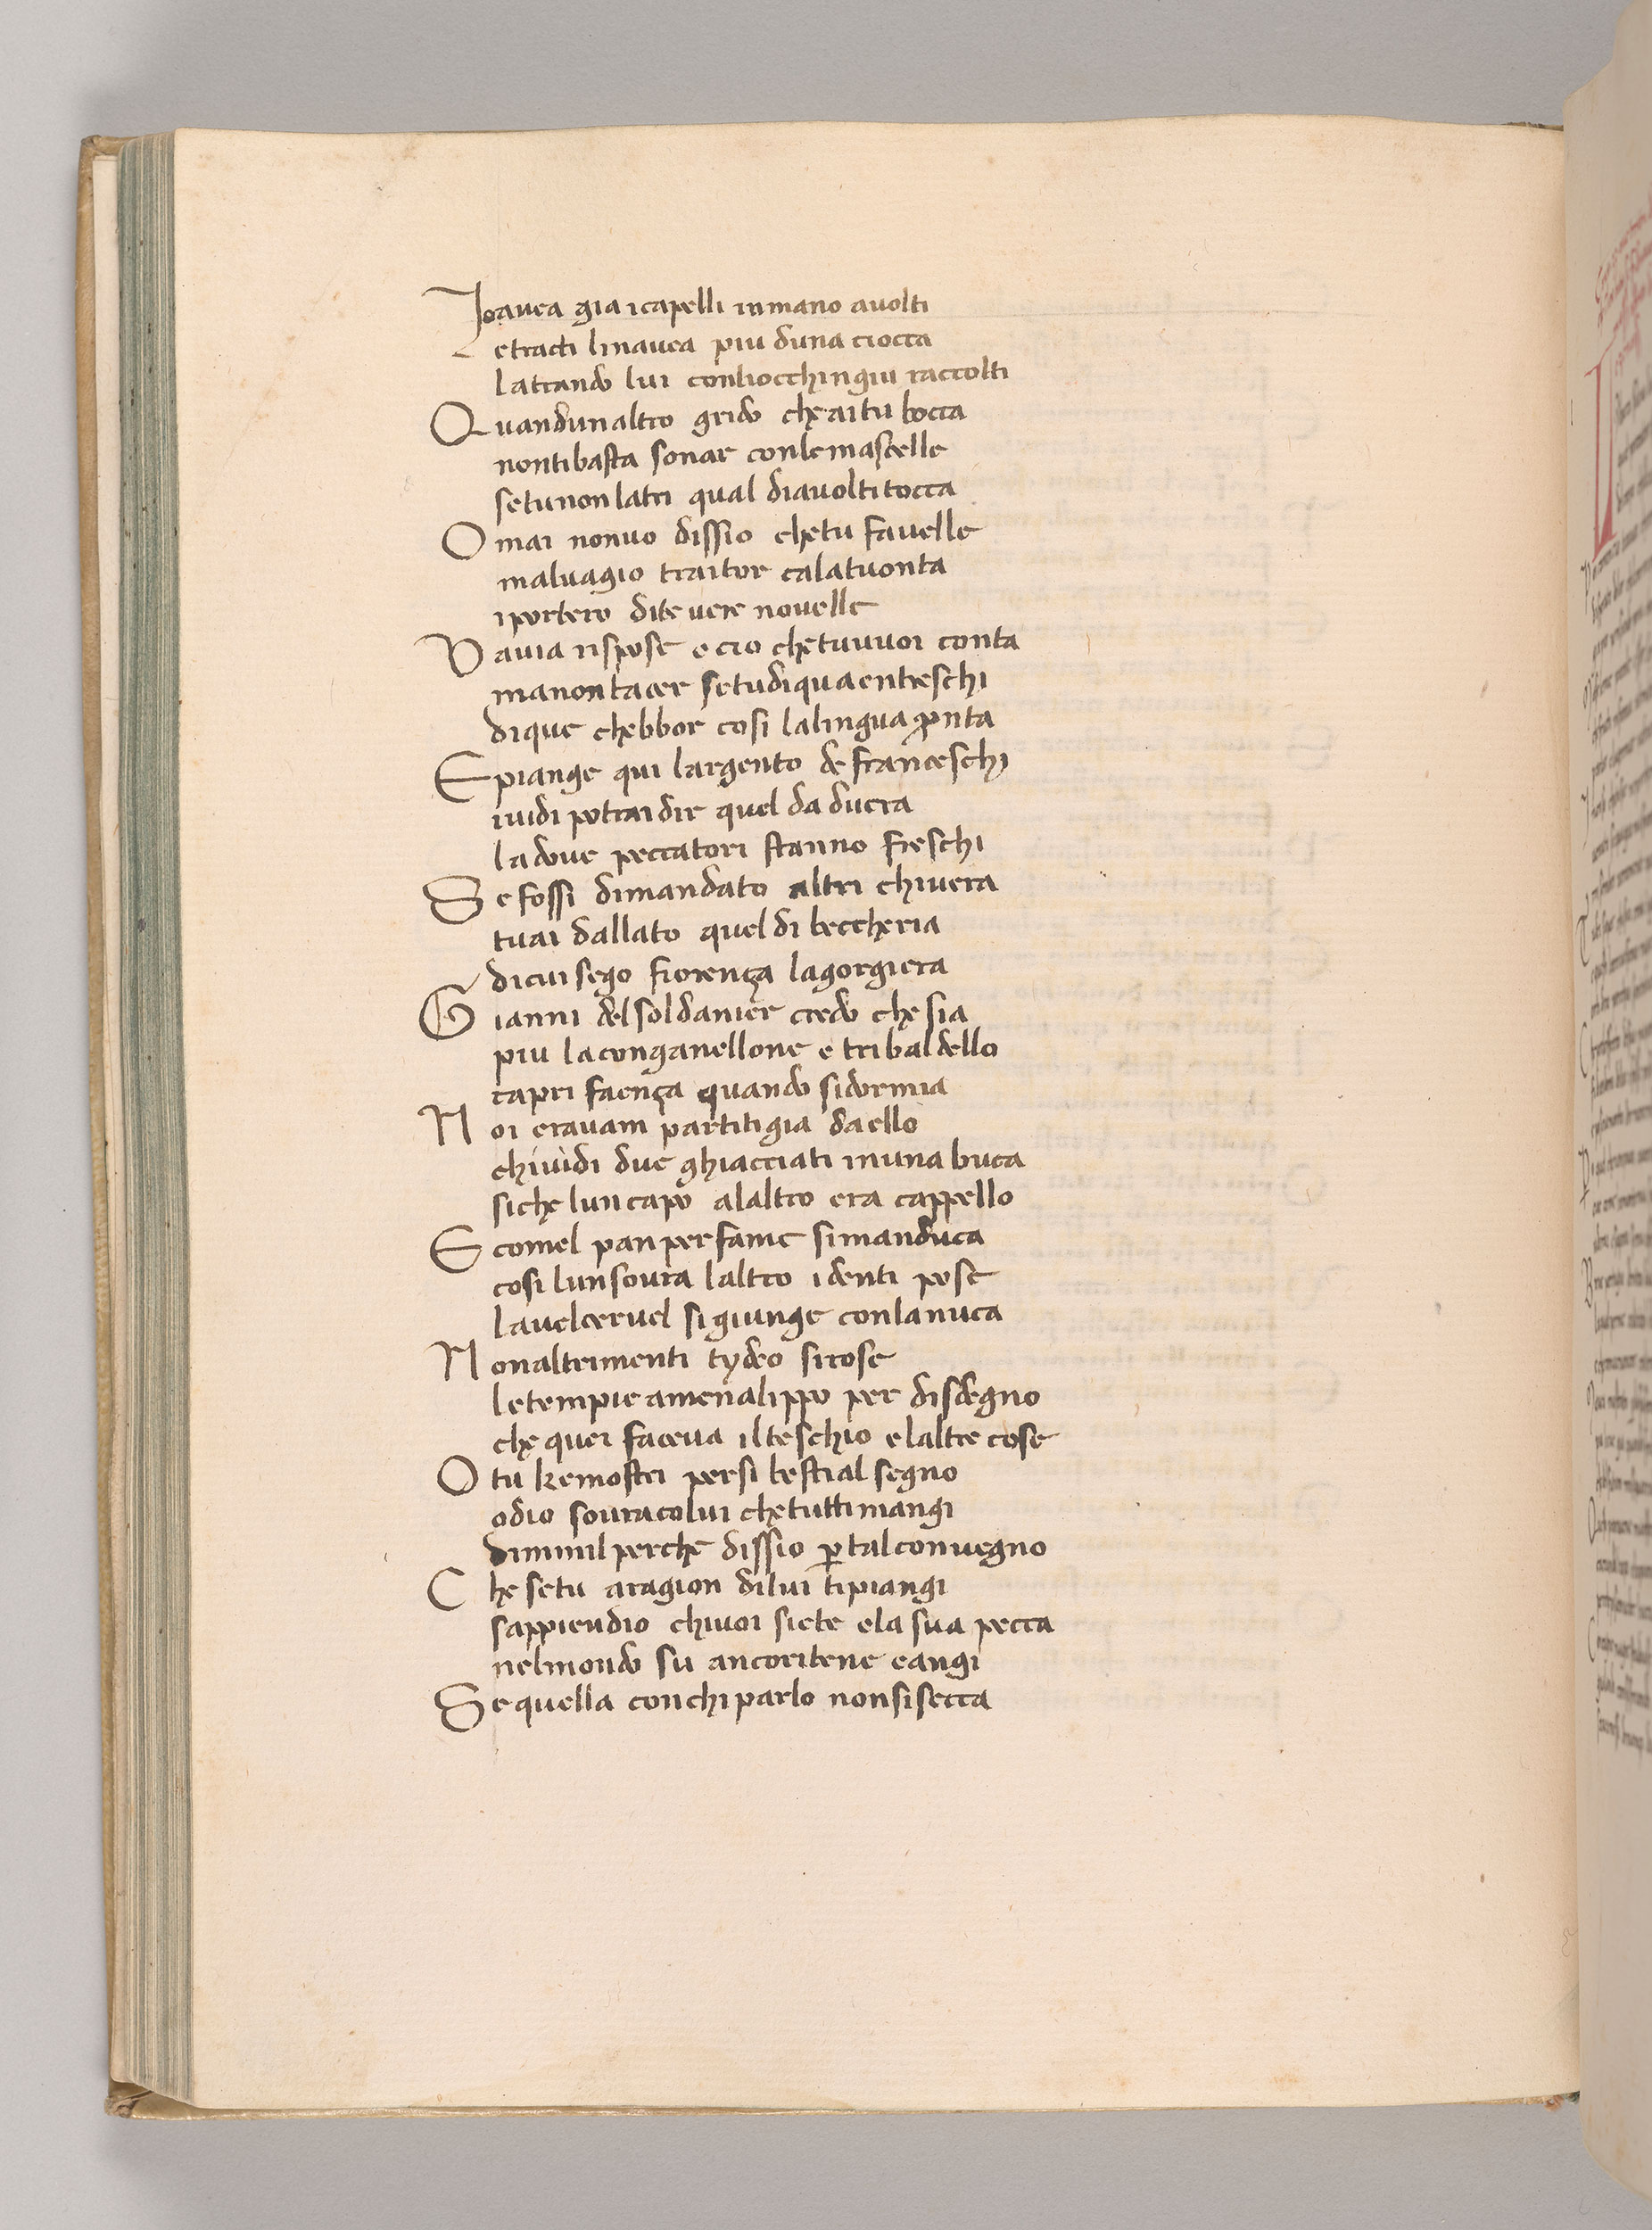 Io avea gia i capelli in mano avolti
e tracti linavea piu duna ciocca
latrando lui conliocchi ngiu raccolti
Quandunaltro grido che ai tu bocca
nontibasta sonar conle mascelle
setunonlatri qual diavoltitocca
Omai nonvo dissio chetu favelle
malvagio traitor calatuonta
iportero dite vere novelle
Vavia rispose e cio chetuvuoi conta
manontacer setudiquaentreschi
dique chebbor cosi lalingua ꝓnta
Epiange qui largento de franceschi
ividi potraidir quel da duera
ladove peccatori stanno freschi
Se fossi dimandato altri chivera
tuai dallato quel di beccheria
dicui sego fiorença lagorgiera
Gianni del soldanier credo che sia
piu laconganellone e tribaldello
capri faença quando sidormia
Noi eravam partitigia daello
chividi due ghiacciati inuna buca
siche luncapo alaltro era cappello
E comel panperfame simanduca
cosi lunsovra laltro identi pose
lavelcervel sigiunge conlanuca
Nonaltrimenti tydeo sirose
letempie amenalippo per disdegno
che quei faceva ilteschio elaltre cose
O tu kemostri persi bestial segno
odio sovracolui chetuttimangi
dimmilperche dissio ꝑtalconvegno
Che setu aragion dilui tipiangi
sappiendio chivoi siete ela sua pecca
nelmondo su ancoritene cangi
Sequella conchiparlo nonsisecca